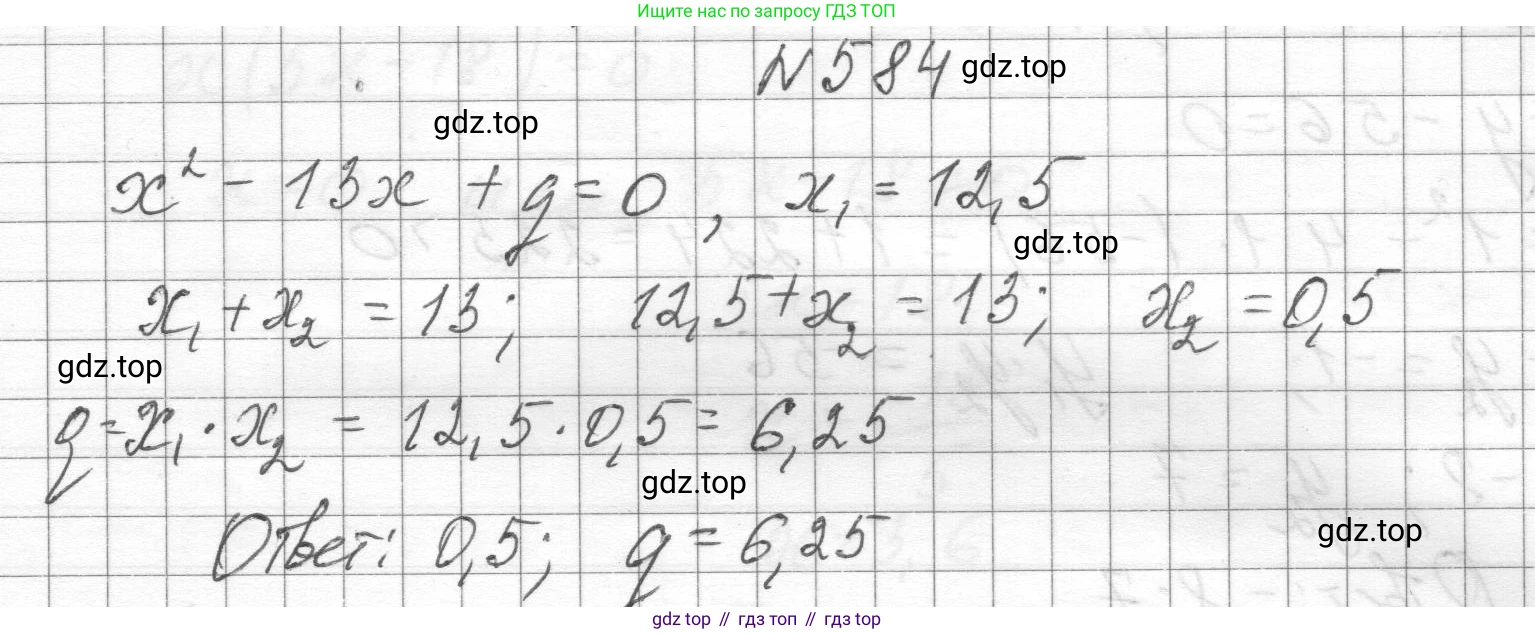 Ищите нас по запросу ГДЗ ТОП
N 584 gdz.top
gdz.top
x² - 13x + q = 0, x₁ = 12,5
gdz.top
x₁ + x₂ = 13; 12,5 + x₂ = 13; x₂ = 0,5
gdz.top
q = x₁ · x₂ = 12,5 · 0,5 = 6,25
gdz.top
Ответ: 0,5; q = 6,25
gdz.top
gdz top // гдз топ // gdz top